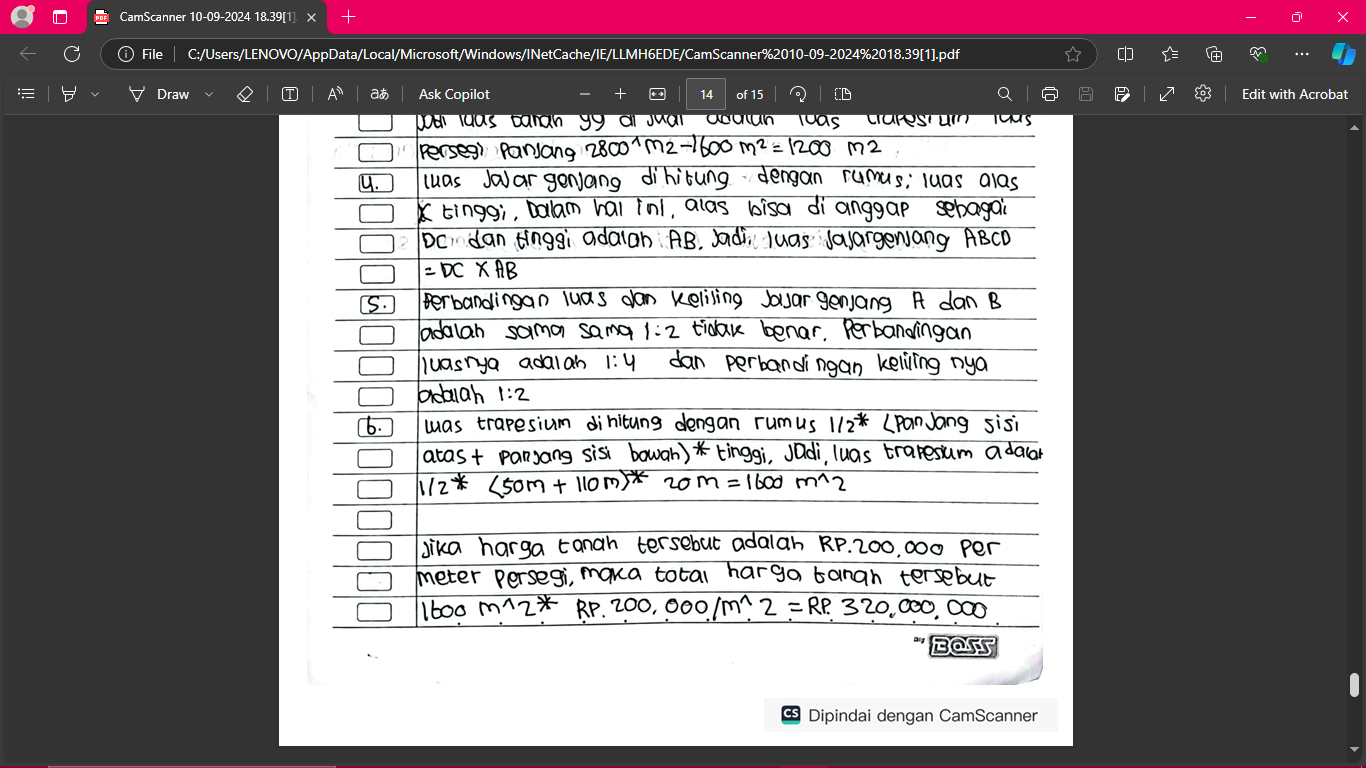 CamScanner 10-09-2024 18.39[1]
File C:/Users/LENOVO/AppData/Local/Microsoft/Windows/INetCache/IE/LLMH6EDE/CamScanner%2010-09-2024%2018.39[1].pdf
Draw aあ Ask Copilot 14 of 15 Edit with Acrobat
Jadi luas tanah yg di jual adalah luas trapesium luas
Persegi Panjang 2800^m2-1600 m² = 1200 m2
4. luas Jajar genjang dihitung dengan rumus: luas alas
X tinggi, Dalam hal ini, alas bisa di anggap sebagai
DC dan tinggi adalah AB. Jadi, luas Jajargenjang ABCD
= DC X AB
5. Perbandingan luas dan keliling Jajar genjang A dan B
adalah sama sama 1:2 tidak benar. Perbandingan
luasnya adalah 1:4 dan perbandingan keliling nya
adalah 1:2
6. luas trapesium dihitung dengan rumus 1/2* (Panjang sisi
atas + panjang sisi bawah)* tinggi, Jadi, luas trapesium adalah
1/2* (50m + 110m)* 20m = 1600 m^2
Jika harga tanah tersebut adalah RP.200.000 per
meter persegi, maka total harga tanah tersebut
1600 m^2* RP. 200.000/m^2 = RP. 320.000.000
Big BOSS
CS Dipindai dengan CamScanner